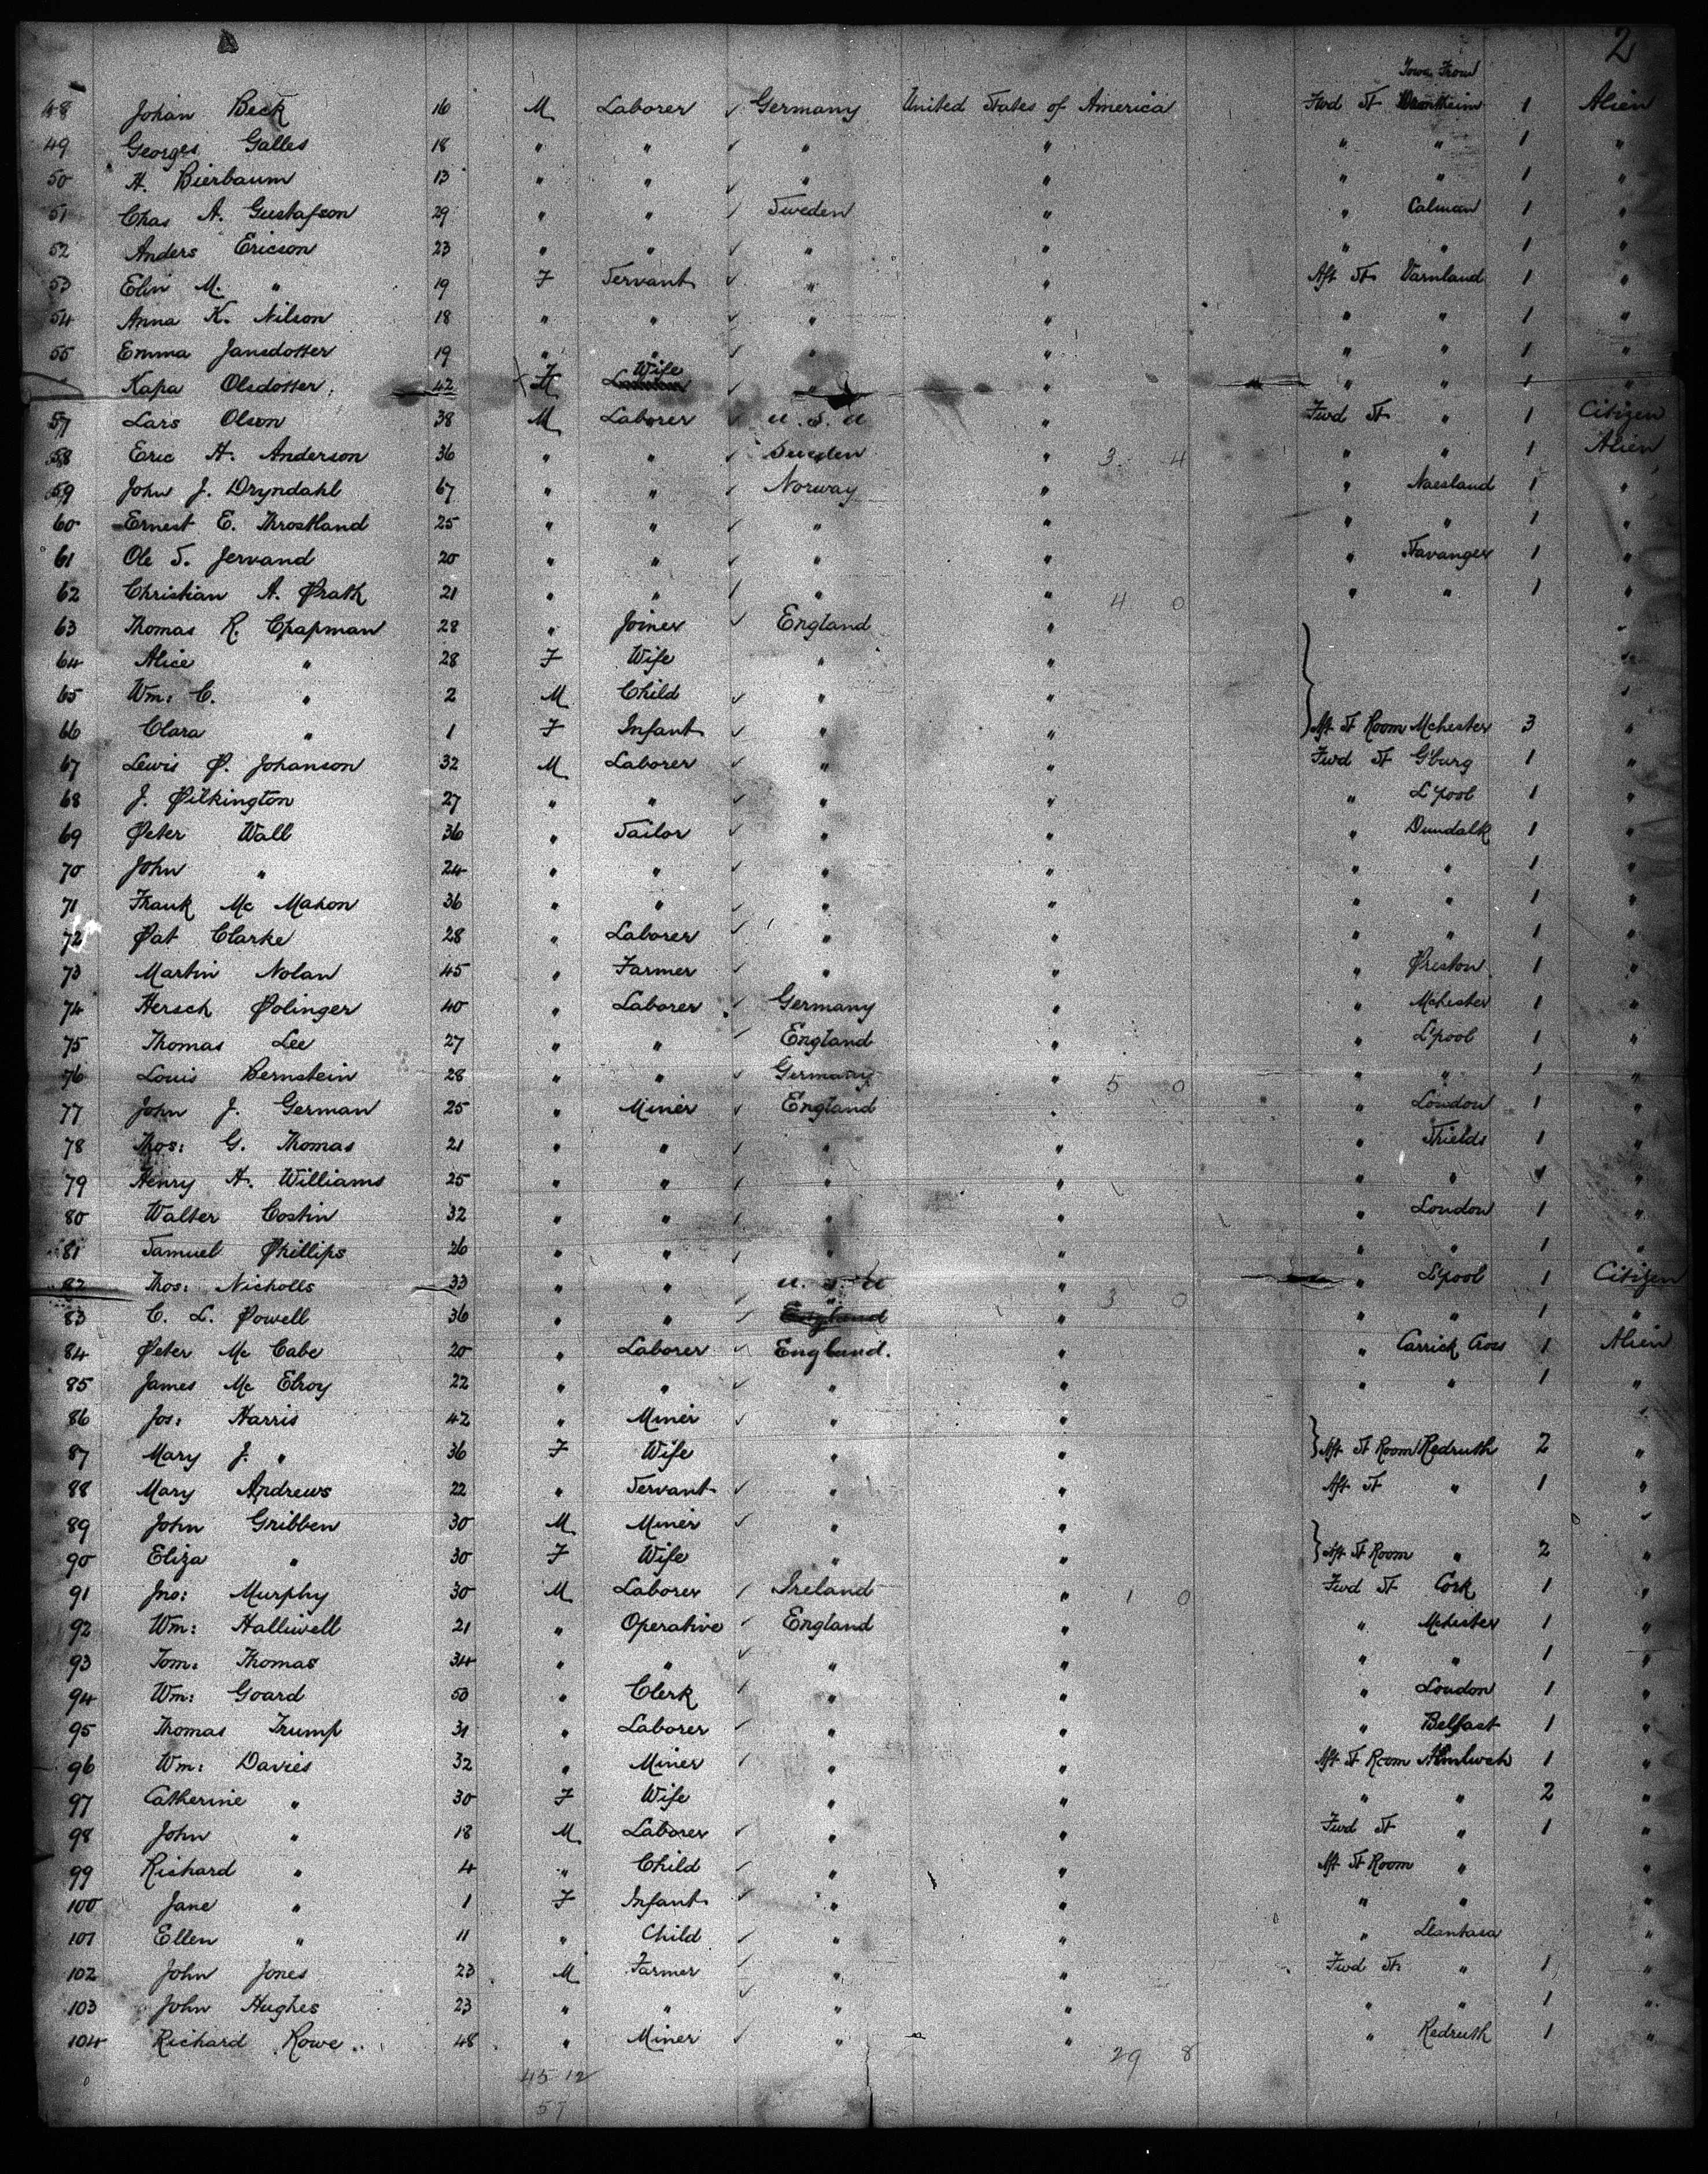 2
Town From
48 Johan Beck 16 M Laborer ✓ Germany United States of America Fwd St 1 Alien
49 Georges Galles 18 " " ✓ " " " " 1 "
50 H. Bierbaum 13 " " ✓ " " " " 1 "
51 Chas A. Gustafson 29 " " ✓ Sweden " " Calmar 1 "
52 Anders Ericson 23 " " ✓ " " " " 1 "
53 Elin M. " 19 F Servant ✓ " " Aft St Varnland 1 "
54 Anna K. Nilson 18 " " ✓ " " " " 1 "
55 Emma Jansdotter 19 " " ✓ " " " " 1 "
Kapa Olsdotter 42 F Wife ✓ " " " " 1 "
57 Lars Olson 38 M Laborer ✓ U.S.A " Fwd St " 1 Citizen
58 Eric H. Anderson 36 " " ✓ Sweden " 3 4 " " 1 Alien
59 John J. Dryndahl 67 " " ✓ Norway " " Naesland 1 "
60 Ernest E. Throstland 25 " " ✓ " " " " 1 "
61 Ole S. Jervand 20 " " ✓ " " " Stavanger 1 "
62 Christian A. Prath 21 " " ✓ " " 4 0 " " 1 "
63 Thomas R. Chapman 28 " Joiner ✓ England " "
64 Alice " 28 F Wife " " "
65 Wm: C. " 2 M Child ✓ " " "
66 Clara " 1 F Infant ✓ " " Aft St Room Mchester 3 "
67 Lewis P. Johanson 32 M Laborer ✓ " " Fwd St G'burg 1 "
68 J. Pilkington 27 " " ✓ " " " L'pool 1 "
69 Peter Wall 36 " Tailor ✓ " " " Dundalk 1 "
70 John " 24 " " ✓ " " " " 1 "
71 Frank Mc Mahon 36 " " ✓ " " " " 1 "
72 Pat Clarke 28 " Laborer ✓ " " " " 1 "
73 Martin Nolan 45 " Farmer ✓ " " " Preston 1 "
74 Hersch Polinger 40 " Laborer ✓ Germany " " Mchester 1 "
75 Thomas Lee 27 " " ✓ England " " L'pool 1 "
76 Louis Bernstein 28 " " ✓ Germany " 5 0 " " 1 "
77 John J. German 25 " Miner ✓ England " " London 1 "
78 Thos: G. Thomas 21 " " ✓ " " " Shields 1 "
79 Henry H. Williams 25 " " ✓ " " " " 1 "
80 Walter Costin 32 " " ✓ " " " London 1 "
81 Samuel Phillips 26 " " ✓ " " " " 1 "
82 Thos: Nicholls 33 " " U.S.A " " L'pool 1 Citizen
83 C. L. Powell 36 " " ✓ " " 3 0 " " 1 "
84 Peter Mc Cabe 20 " Laborer ✓ England. " " Carrick Cross 1 Alien
85 James Mc Elroy 22 " " ✓ " " " " 1 "
86 Jos: Harris 42 " Miner ✓ " " "
87 Mary J. " 36 F Wife " " Aft St Room Redruth 2 "
88 Mary Andrews 22 " Servant ✓ " " Aft St " 1 "
89 John Gribben 30 M Miner ✓ " " "
90 Eliza " 30 F Wife " " Aft St Room " 2 "
91 Jno: Murphy 30 M Laborer ✓ Ireland " 1 0 Fwd St Cork 1 "
92 Wm: Halliwell 21 " Operative ✓ England " " Mchester 1 "
93 Tom: Thomas 34 " " ✓ " " " " 1 "
94 Wm: Goard 50 " Clerk ✓ " " " London 1 "
95 Thomas Trump 31 " Laborer ✓ " " " Belfast 1 "
96 Wm: Davies 32 " Miner ✓ " " Aft St Room 1 "
97 Catherine " 30 F Wife " " " " 2 "
98 John " 18 M Laborer ✓ " " Fwd St " 1 "
99 Richard " 4 " Child ✓ " " Aft St Room " "
100 Jane " 1 F Infant ✓ " " " " "
101 Ellen " 11 " Child ✓ " " " Llantasa "
102 John Jones 23 M Farmer ✓ " " Fwd St " 1 "
103 John Hughes 23 " " ✓ " " " " 1 "
104 Richard Rowe 48 " Miner ✓ " " " Redruth 1 "
29 8
45 12
57